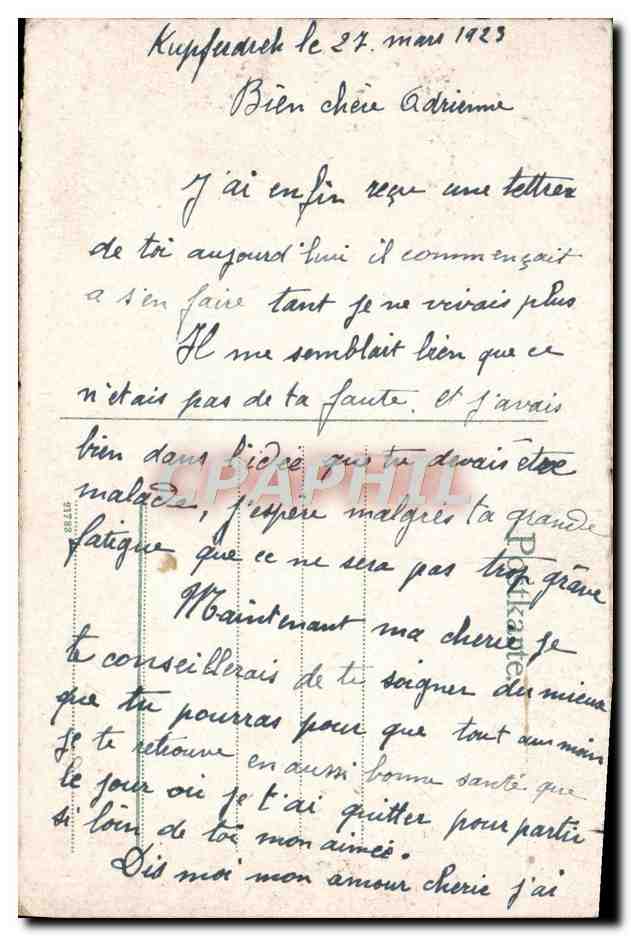 Kupferdreh le 27. mars 1923
Bien chère Adrienne
J'ai enfin reçu une lettre
de toi aujourd'hui il commençait
a s'en faire tant je ne vivais plus
Il me semblait bien que ce
n'étais pas de ta faute. et j'avais
bien dans l'idée que tu devais être
malade, j'espère malgrès ta grande
fatigue que ce ne sera pas trop grâve
Maintenant ma cherie, je
te conseillerais de te soigner du mieux
que tu pourras pour que tout au moin
je te retrouve en aussi bonne santé que
le jour où je t'ai quitter pour partir
si loin de toi mon aimée.
Dis moi mon amour cherie j'ai
CPAPHIL
91783
Postkarte.